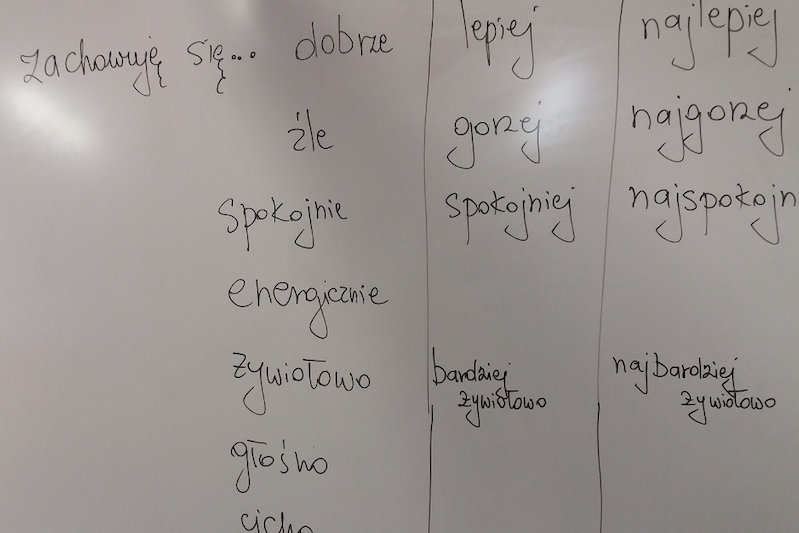 zachowuję się... dobrze lepiej najlepiej
źle gorzej najgorzej
spokojnie spokojniej najspokojn
energicznie
żywiołowo bardziej żywiołowo najbardziej żywiołowo
głośno
cicho